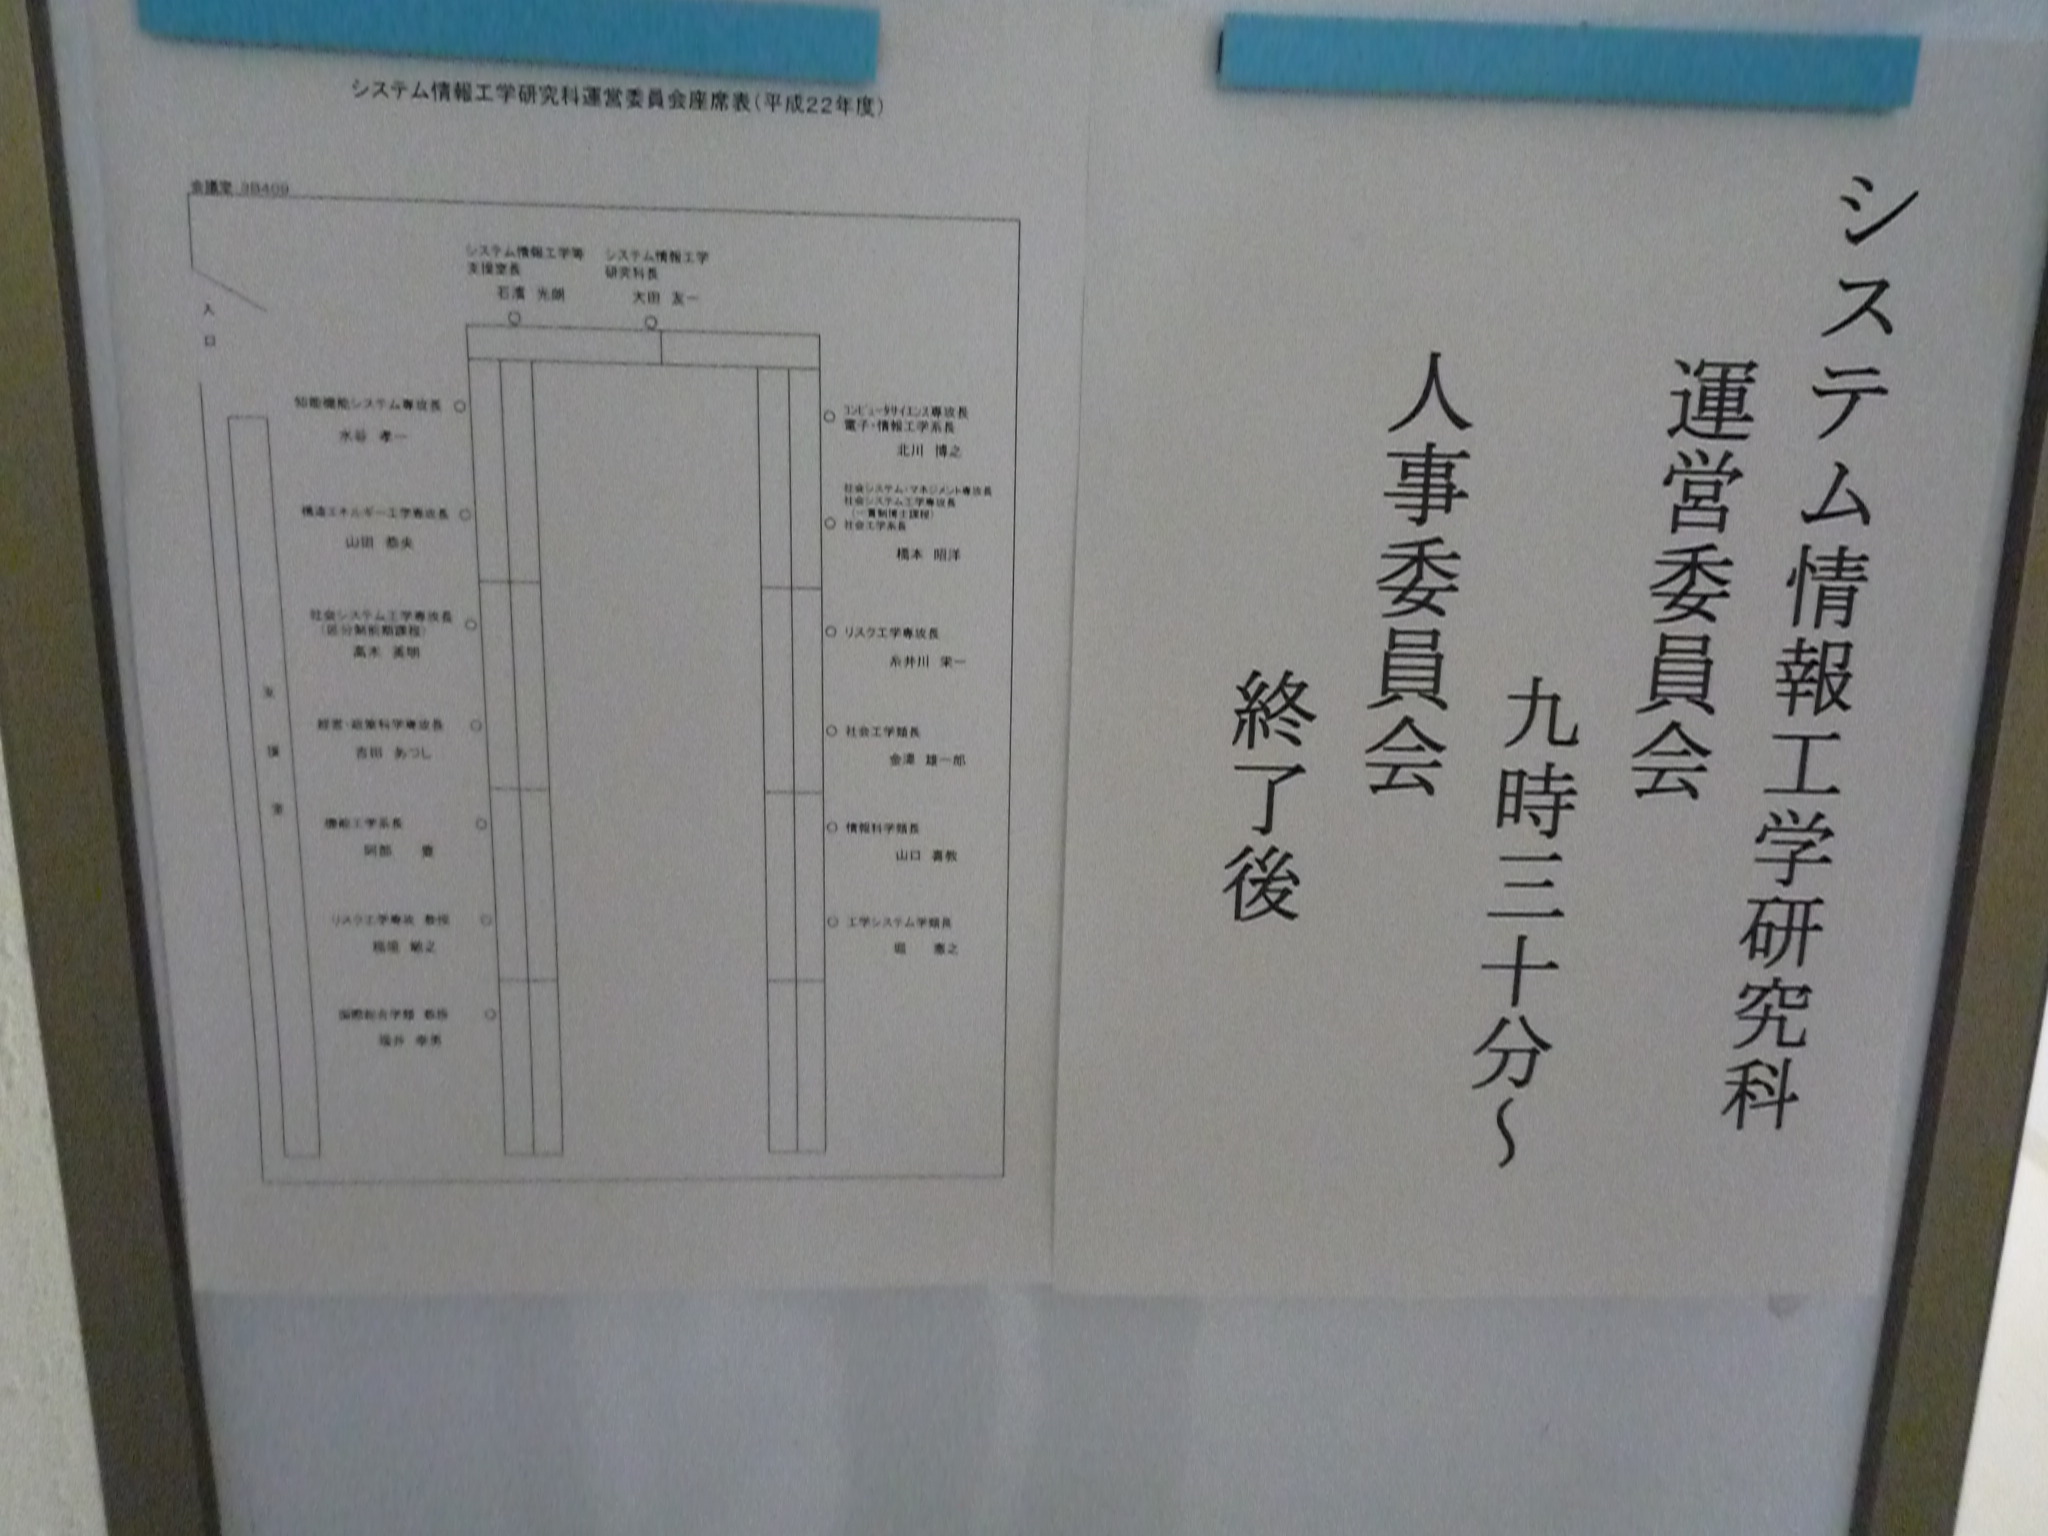 システム情報工学研究科運営委員会座席表(平成22年度)
会議室 3B409
システム情報工学等
支援室長
石濱 光朗
システム情報工学
研究科長
大田 友一
入
口
知能機能システム専攻長
水谷 孝一
構造エネルギー工学専攻長
山田 恭央
社会システム工学専攻長
(区分制前期課程)
高木 英明
経営・政策科学専攻長
吉田 あつし
機能工学系長
阿部 豊
リスク工学専攻 教授
稲垣 敏之
国際総合学類 教授
福井 幸男
支
援
室
コンピュータサイエンス専攻長
電子・情報工学系長
北川 博之
社会システム・マネジメント専攻長
社会システム工学専攻長
(一貫制博士課程)
社会工学系長
橋本 昭洋
リスク工学専攻長
糸井川 栄一
社会工学類長
金澤 雄一郎
情報科学類長
山口 喜教
工学システム学類長
堀 憲之
システム情報工学研究科
運営委員会
九時三十分～
人事委員会
終了後